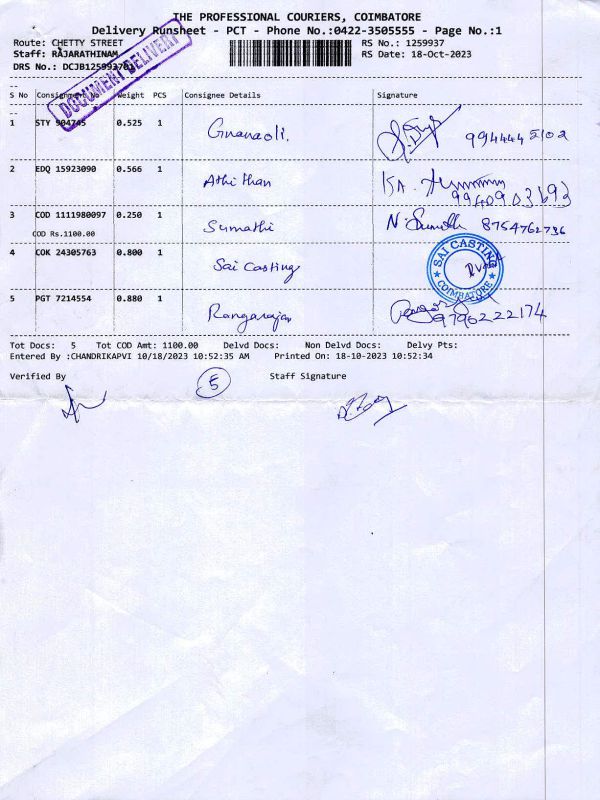 THE PROFESSIONAL COURIERS, COIMBATORE
Delivery Runsheet - PCT - Phone No.:0422-3505555 - Page No.:1
Route: CHETTY STREET
RS No.: 1259937
Staff: RAJARATHINAM
RS Date: 18-Oct-2023
DRS No.: DCJB1259937
DOCUMENT DELIVERY
S No Consignment No Weight PCS Consignee Details Signature
1 STY 904745 0.525 1 Gnanaoli. 9944445102
2 EDQ 15923090 0.566 1 Athithan KA. 9940903693
3 COD 1111980097 0.250 1 Sumathi N. Sumathi 8754762736
COD Rs.1100.00
4 COK 24305763 0.800 1 Sai Casting
SAI CASTING
COIMBATORE
5 PGT 7214554 0.880 1 Rangarajan 9796222174
Tot Docs: 5 Tot COD Amt: 1100.00 Delvd Docs: Non Delvd Docs: Delvy Pts:
Entered By :CHANDRIKAPVI 10/18/2023 10:52:35 AM Printed On: 18-10-2023 10:52:34
Verified By 5 Staff Signature